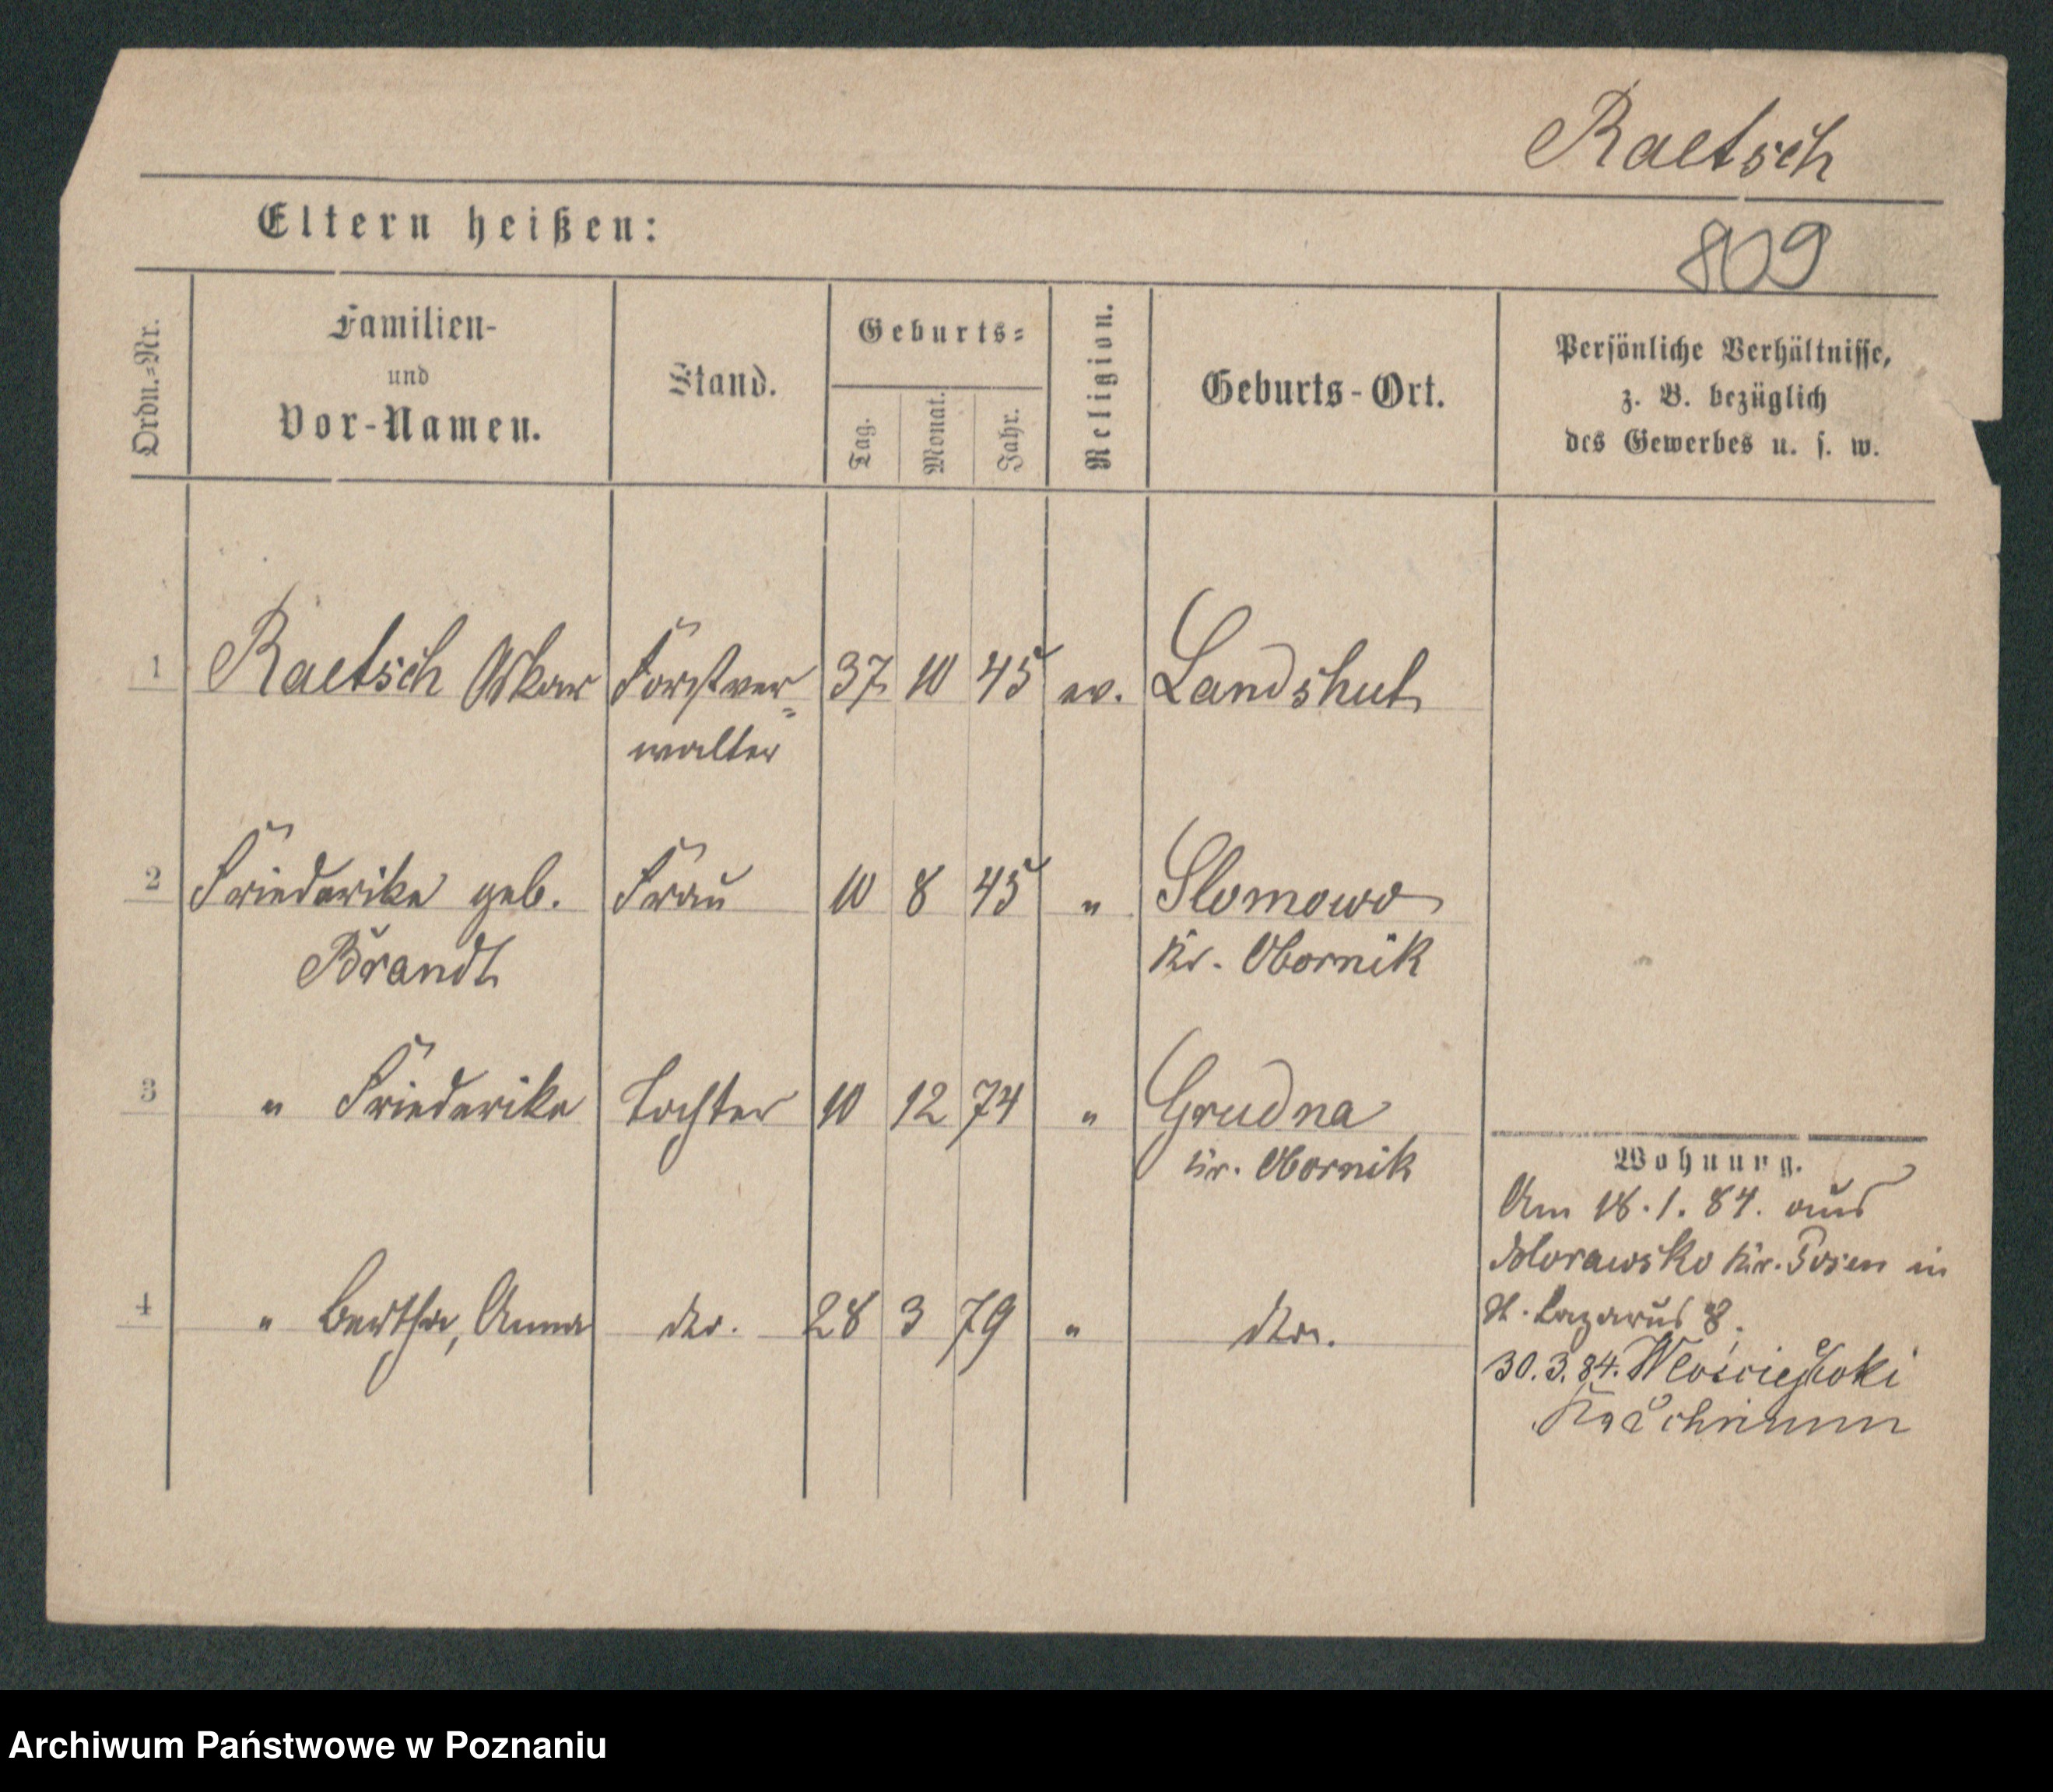 Raetsch
Eltern heißen:
809
Ordn.-Nr.
Familien-
und
Vor-Namen.
Stand.
Geburts-
Tag.
Monat.
Jahr.
Religion.
Geburts-Ort.
Persönliche Verhältnisse,
z. B. bezüglich
des Gewerbes u. s. w.
1 Raetsch Oskar Forstver= 37 10 45 ev. Landshut
walter
2 Friederike geb. Frau 10 8 45 " Slomowo
Brandt Kr. Obornik
3 " Friederike Tochter 10 12 74 " Grudna
Kr. Obornik
4 " Bertha, Anna do. 28 3 79 " do.
Wohnung.
Am 18.1.84. aus
Morawsko Kr. Posen in
St. Lazarus 8.
30.3.84.
Archiwum Państwowe w Poznaniu